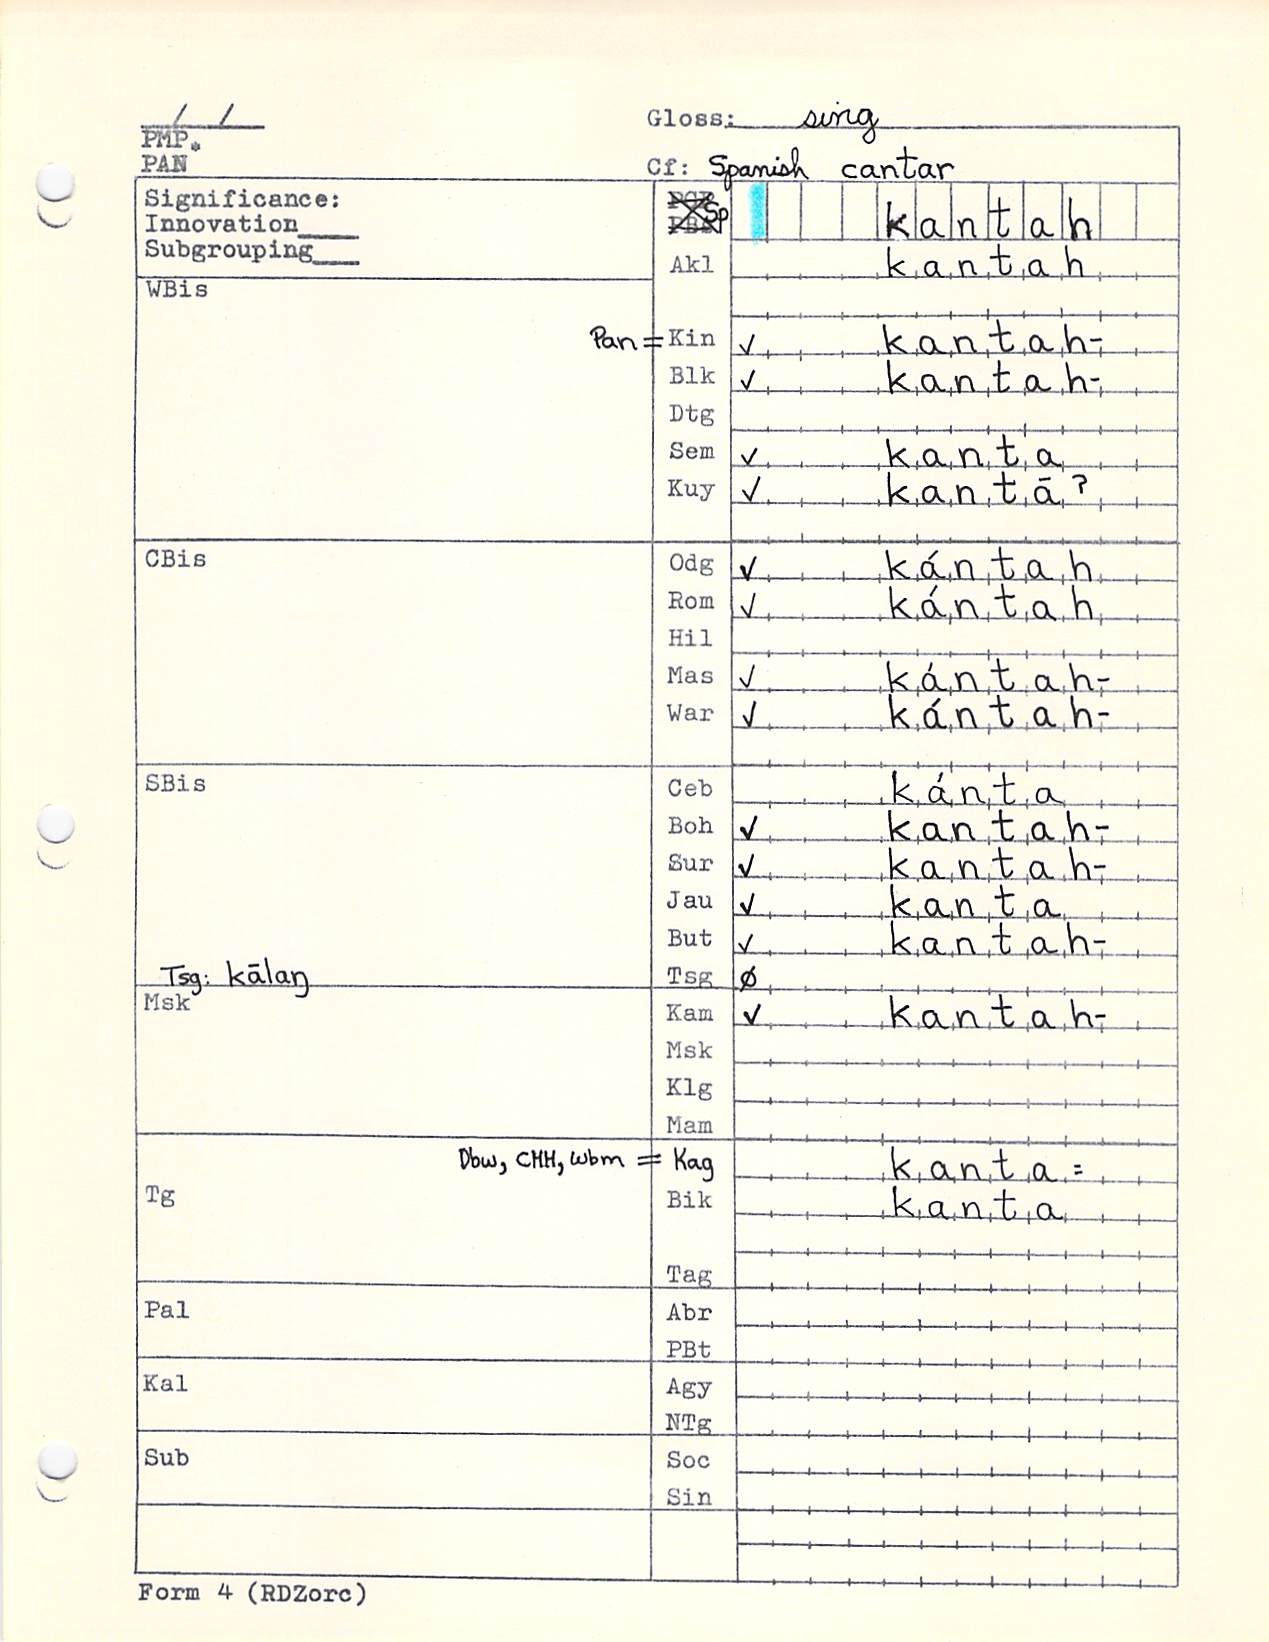 / /
Gloss: sing
PMP.
PAN
Cf: Spanish cantar
Significance:
Innovation___
Subgrouping___
Sp kantah
Akl kantah
WBis
Pan = Kin ✓ kantah-
Blk ✓ kantah-
Dtg
Sem ✓ kanta
Kuy ✓ kantāʔ
CBis
Odg ✓ kántah
Rom ✓ kántah
Hil
Mas ✓ kántah-
War ✓ kántah-
SBis
Ceb kánta
Boh ✓ kantah-
Sur ✓ kantah-
Jau ✓ kanta
But ✓ kantah-
Tsg: kālaŋ
Tsg ∅
Msk
Kam ✓ kantah-
Msk
Klg
Mam
Dbw, CMH, Wbm = Kag kanta=
Tg
Bik kanta
Tag
Pal
Abr
PBt
Kal
Agy
NTg
Sub
Soc
Sin
Form 4 (RDZorc)